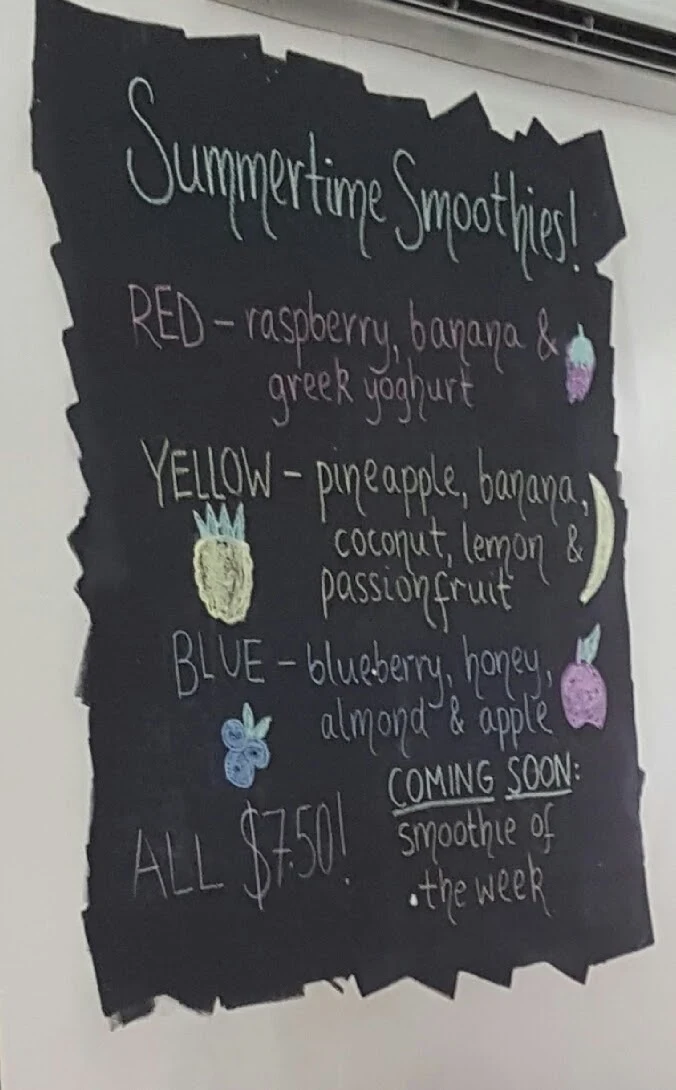 Summertime Smoothies!
RED - raspberry, banana &
greek yoghurt
YELLOW - pineapple, banana,
coconut, lemon &
passionfruit
BLUE - blueberry, honey,
almond & apple
COMING SOON:
smoothie of
the week
ALL $7.50!